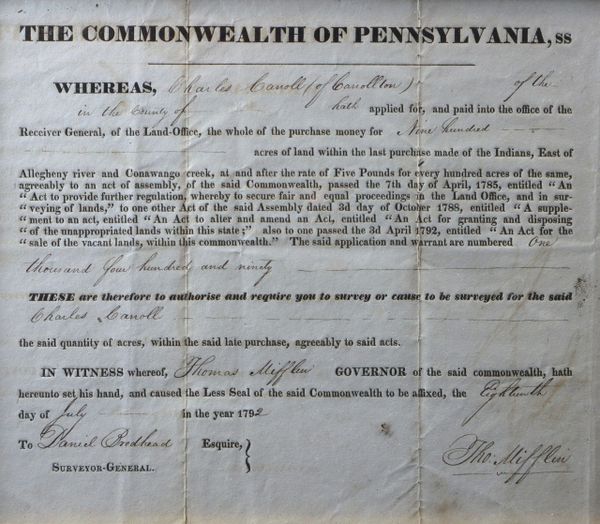 THE COMMONWEALTH OF PENNSYLVANIA, ss
WHEREAS, Charles Carroll (of Carrollton) of the
in the County of hath applied for, and paid into the office of the
Receiver General, of the Land-Office, the whole of the purchase money for Nine hundred
acres of land within the last purchase made of the Indians, East of
Allegheny river and Conawango creek, at and after the rate of Five Pounds for every hundred acres of the same,
agreeably to an act of assembly, of the said Commonwealth, passed the 7th day of April, 1785, entitled “An
“Act to provide further regulation, whereby to secure fair and equal proceedings in the Land Office, and in sur-
“veying of lands,” to one other Act of the said Assembly dated 3d day of October 1788, entitled “A supple-
“ment to an act, entitled “An Act to alter and amend an Act, entitled “An Act for granting and disposing
“of the unappropriated lands within this state;” also to one passed the 3d April 1792, entitled “An Act for the
“sale of the vacant lands, within this commonwealth.” The said application and warrant are numbered One
thousand four hundred and ninety
THESE are therefore to authorise and require you to survey or cause to be surveyed for the said
Charles Carroll
the said quantity of acres, within the said late purchase, agreeably to said acts.
IN WITNESS whereof, Thomas Mifflin GOVERNOR of the said commonwealth, hath
hereunto set his hand, and caused the Less Seal of the said Commonwealth to be affixed, the Eighteenth
day of July in the year 1792
To Daniel Brodhead Esquire, }
SURVEYOR-GENERAL.
Tho. Mifflin